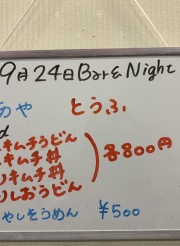 9月24日 Bar & Night
めや とうふ
d
キムチうどん
キムチ丼 各800円
キムチ丼
しおうどん
やしそうめん ¥500